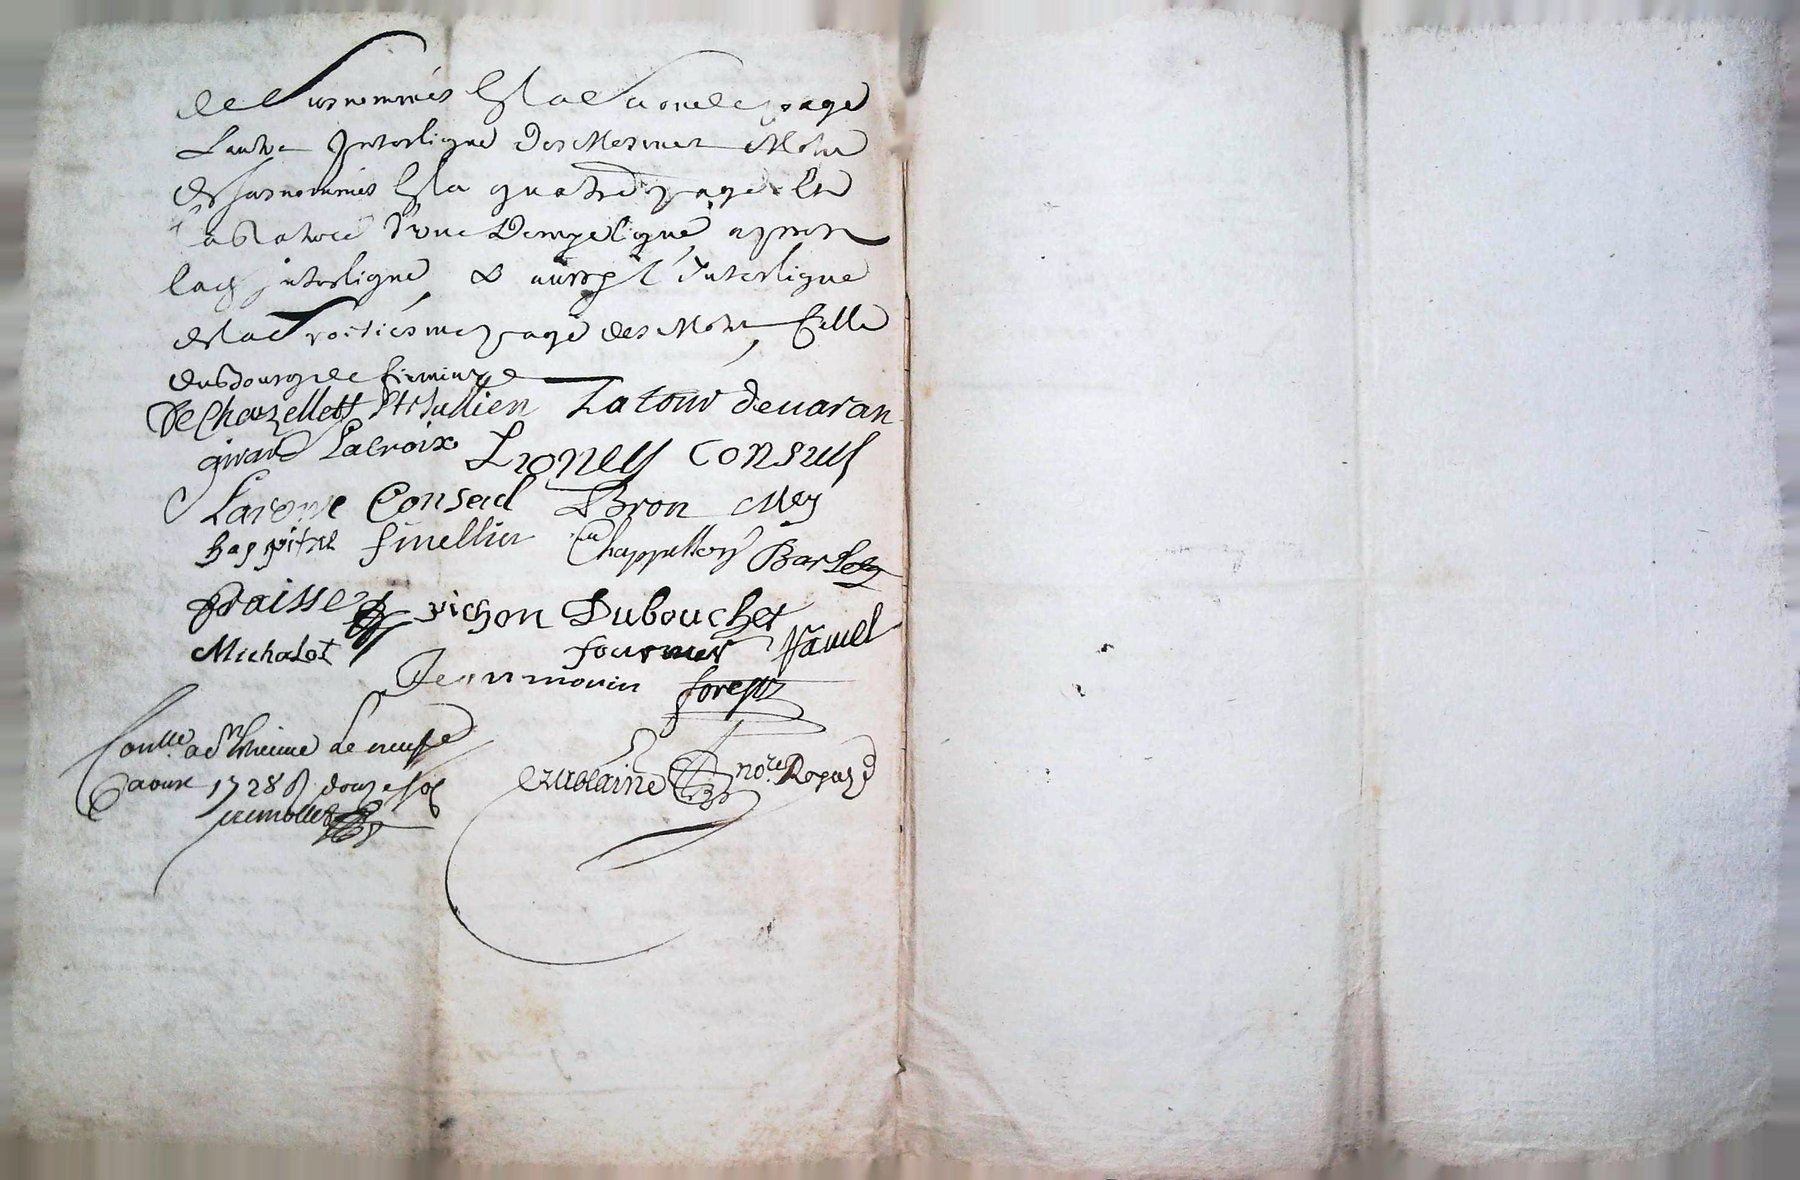 de Susnommés Et a la seconde page
Lautre Interligne des Mesmes Mots
de susnommés Et a quatre page Et
d'une Demye ligne apres
interligne & aussy l'Interligne
de la Troitiesme page des Mots, Celle
du bourg de firminy
De Chazelles St Jullien La tour de varan
girard Lacroix Lyonet Consul
Laroue Consul Bron Mey
happitre finellier Chappellon Barlet
fraisse pichon Dubouchet
Michalot fournier Ravel
Jean morin forest
Conlle a St Etienne Le neufe
aoust 1728 R douze sols
nore Royal